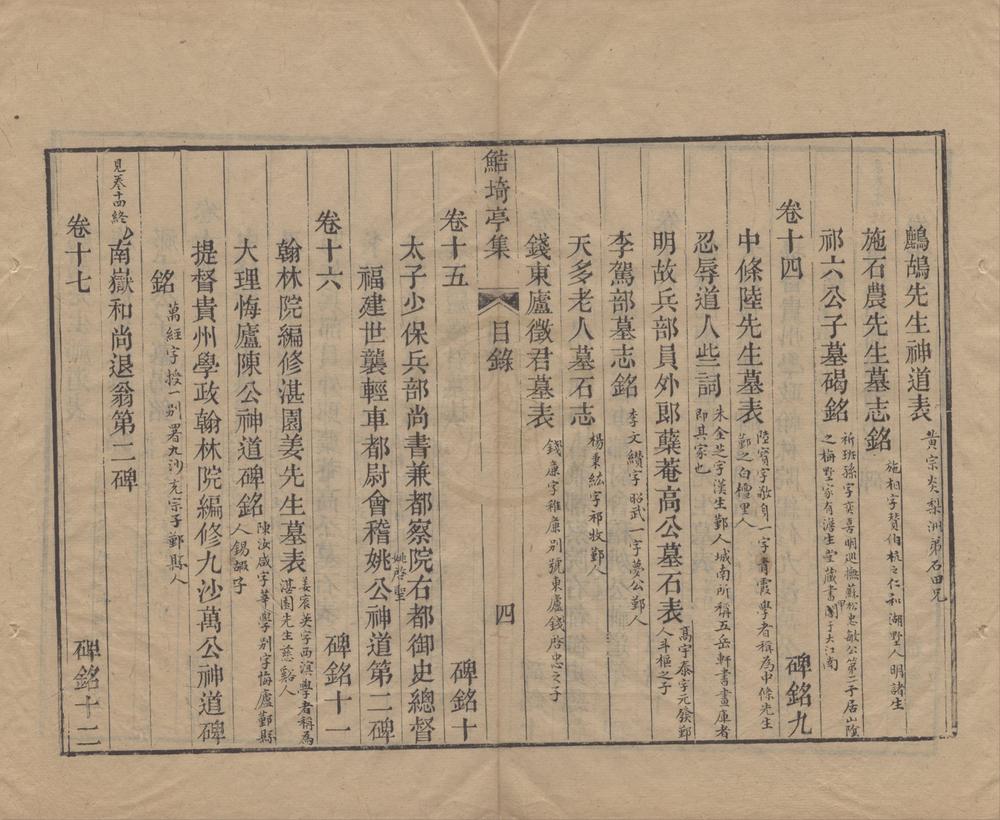 鷓鴣先生神道表 黃宗炎梨洲弟石田兄
施石農先生墓志銘 施相字贊伯杭之仁和湖墅人明諸生
祁六公子墓碣銘 祈班孫字奕喜明巡撫蘇松忠敏公第二子居山陰
之梅墅家有澹生堂藏書甲于大江南
卷十四 碑銘九
中條陸先生墓表 陸寳字敬身一字青霞學者稱為中條先生
鄞之白檀里人
忍辱道人些詞 朱金芝字漢生鄞人城南所稱五岳軒書畫庫者
即其家也
明故兵部員外郎蘗菴高公墓石表 高宇泰字元發鄞
人斗樞之子
李駕部墓志銘 李文纘字昭武一字夢公鄞人
天多老人墓石志 楊秉紘字祁牧鄞人
錢東廬徵君墓表 錢廉字稚廉別號東廬錢啓忠之子
鮚埼亭集 目錄 四
卷十五 碑銘十
太子少保兵部尚書兼都察院右都御史總督
福建世襲輕車都尉會稽姚公神道第二碑 姚啓聖
卷十六 碑銘十一
翰林院編修湛園姜先生墓表 姜宸英字西溟學者稱為
湛園先生慈谿人
大理悔廬陳公神道碑銘 陳汝咸字莘學別字悔廬鄞縣
人錫嘏子
提督貴州學政翰林院編修九沙萬公神道碑
銘 萬經字授一別署九沙充宗子鄞縣人
見卷十四終 南嶽和尚退翁第二碑
卷十七 碑銘十二